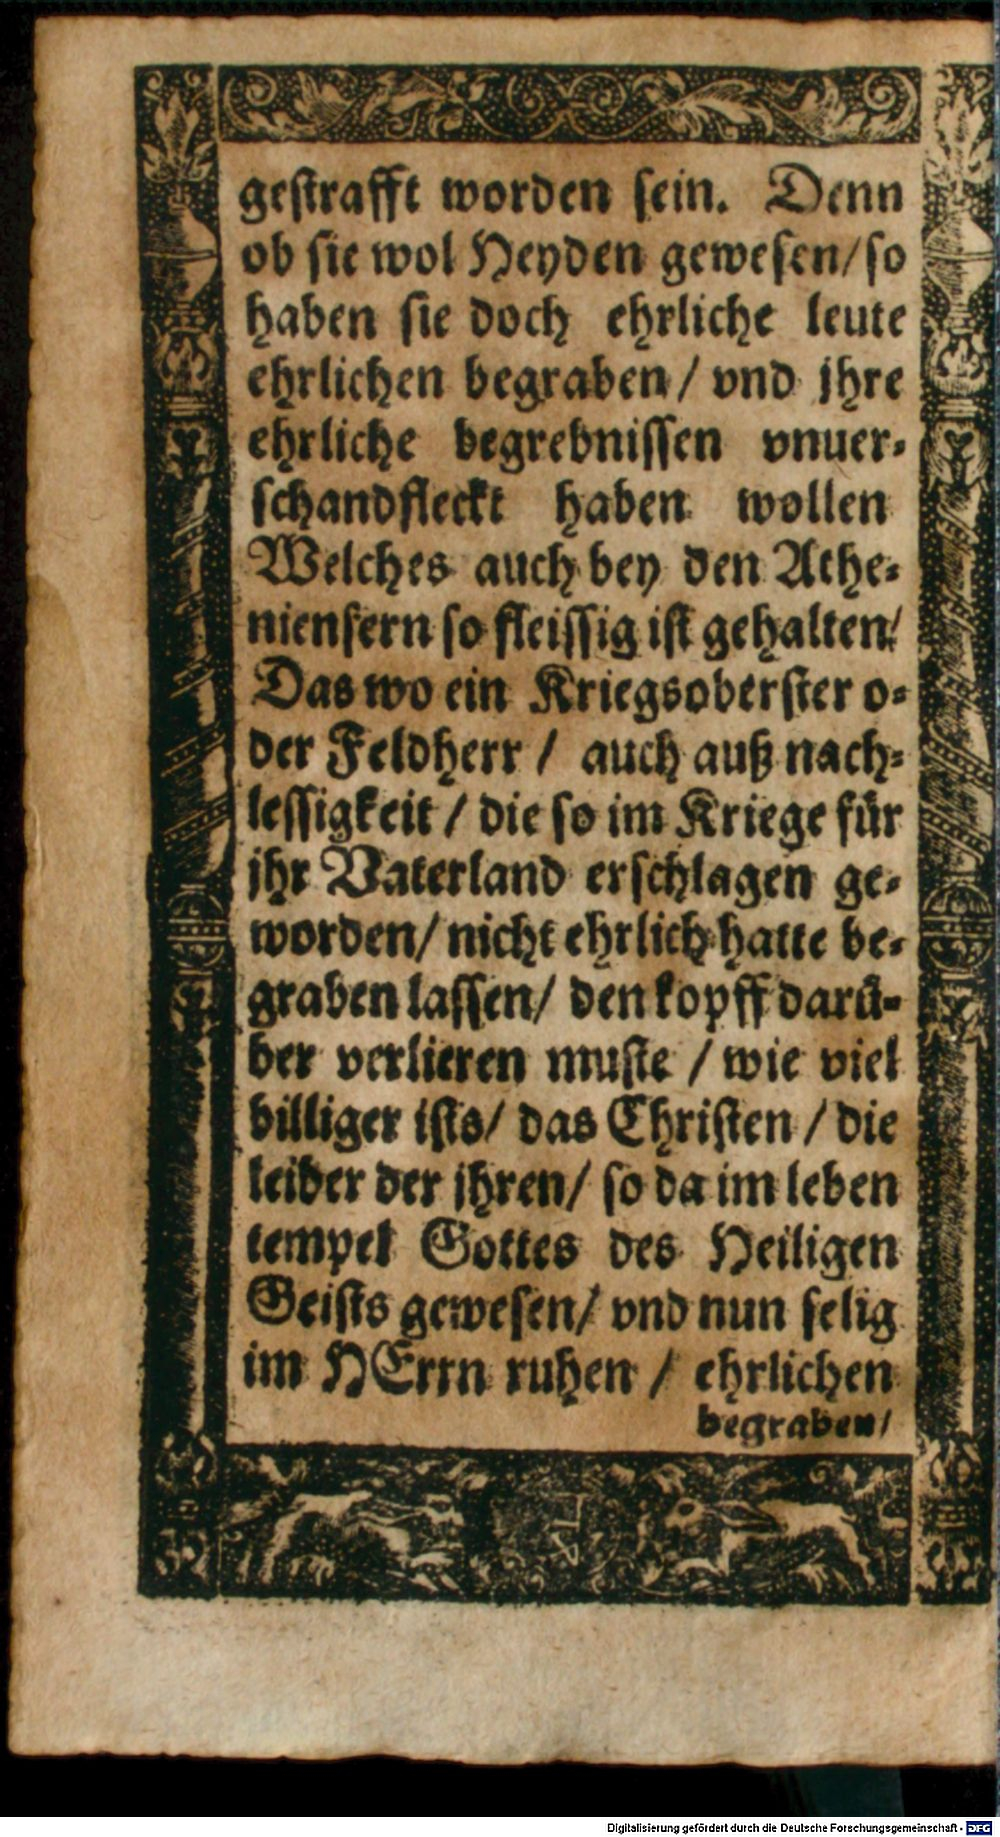 gestrafft worden sein. Denn
ob sie wol Heyden gewesen/so
haben sie doch ehrliche leute
ehrlichen begraben/ vnd jhre
ehrliche begrebnissen vnuer-
schandfleckt haben wollen
Welches auch bey den Athe-
niensern so fleissig ist gehalten/
Das wo ein Kriegsoberster o-
der Feldherr / auch auß nach-
lessigkeit / die so im Kriege für
jhr Vaterland erschlagen ge-
worden/ nicht ehrlich hatte be-
graben lassen/ den kopff darü-
ber verlieren muste / wie viel
billiger ists/ das Christen / die
leiber der jhren/ so da im leben
tempel Gottes des Heiligen
Geists gewesen/ vnd nun selig
im HErrn ruhen / ehrlichen
begraben/
Digitalisierung gefördert durch die Deutsche Forschungsgemeinschaft - DFG